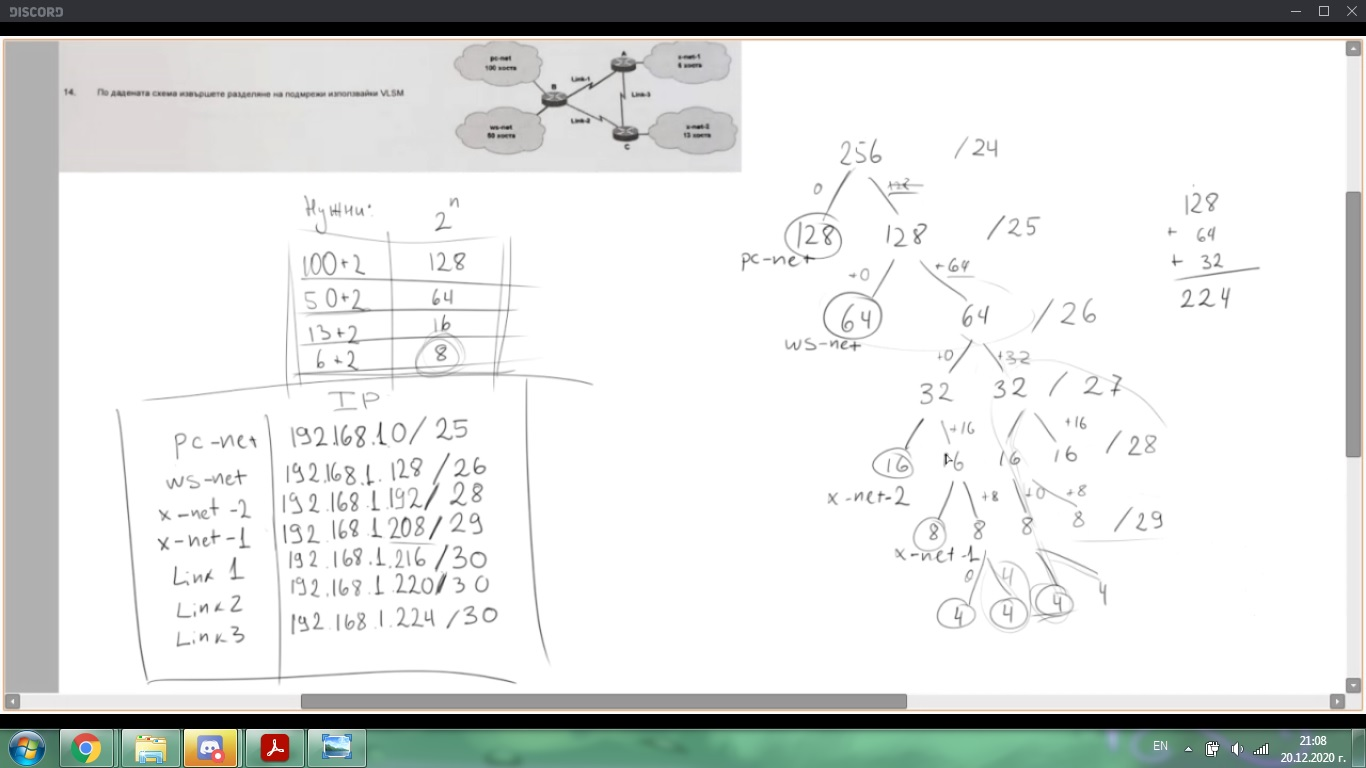 DISCORD
14. По дадената схема извършете разделяне на подмрежи използвайки VLSM
pc-net
100 хоста
B
Link-1
A
x-net-1
6 хоста
Link-3
Link-2
ws-net
50 хоста
C
x-net-2
13 хоста
Нужни: 2^n
100+2 128
50+2 64
13+2 16
6+2 8
IP
pc-net 192.168.1.0/25
ws-net 192.168.1.128/26
x-net-2 192.168.1.192/28
x-net-1 192.168.1 208/29
Link 1 192.168.1.216/30
Link2 192.168.1.220/30
Link3 192.168.1.224/30
256 /24
0 +128
128 128 /25
pc-net
+0 +64
64 64 /26
ws-net
+0 +32
32 32 /27
+16 +16
16 16 16 16 /28
x-net-2
+8 +0 +8
8 8 8 8 /29
x-net-1
0 4
4 4 4 4
128
+ 64
+ 32
224
EN
21:08
20.12.2020 г.